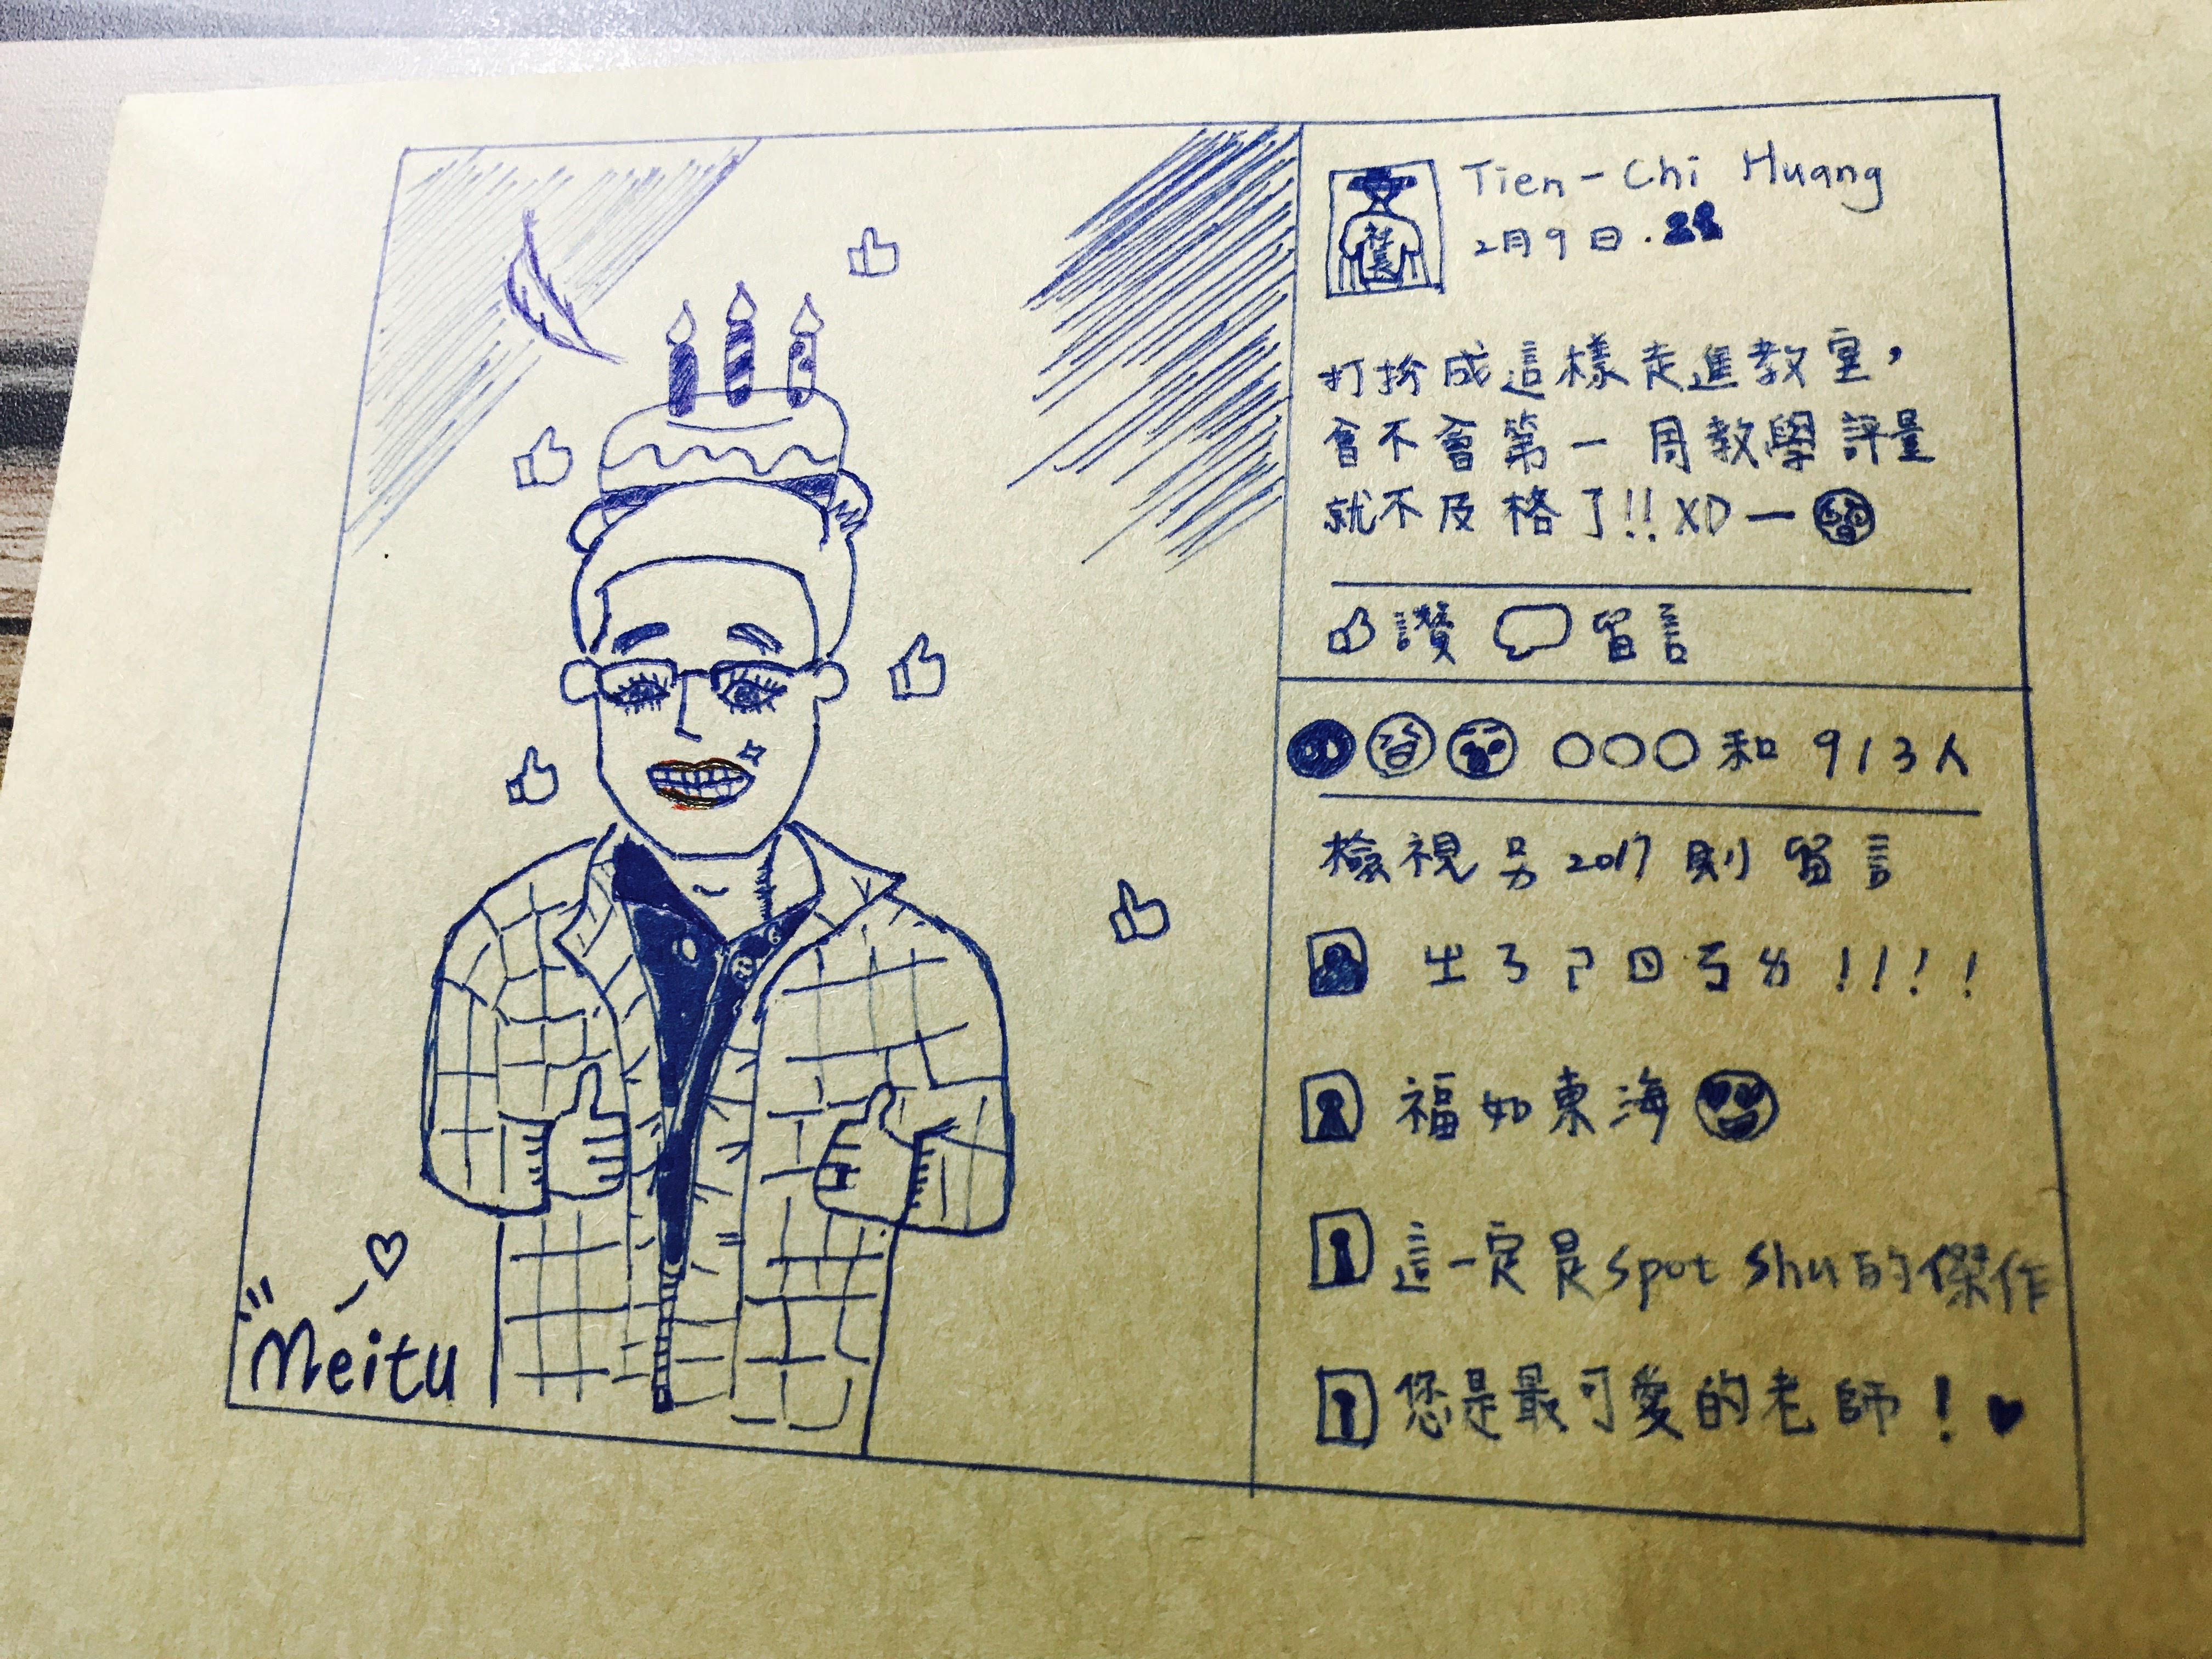 Meitu
社長
Tien-Chi Huang
2月9日.
打扮成這樣走進教室,
會不會第一周教學評量
就不及格了!!XD一
讚 留言
○○○和 913人
檢視另2017則留言
!!!!
福如東海
這一定是Spot Shu的傑作
您是最可愛的老師!